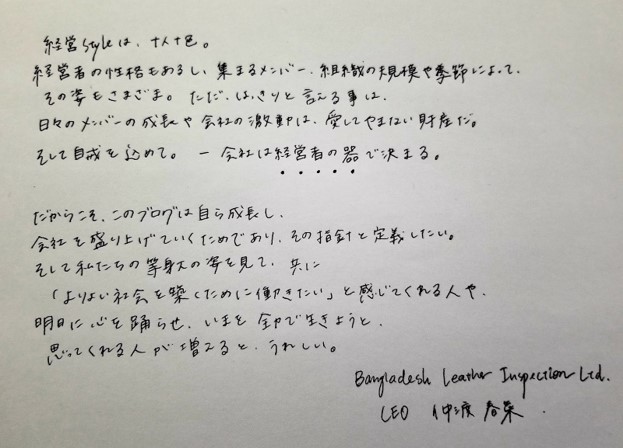 経営styleは、十人十色。
経営者の性格もあるし、集まるメンバー、組織の規模や季節によって、
その姿もさまざま。ただ、はっきりと言える事は、
日々のメンバーの成長や会社の激動は、愛してやまない財産だ。
そして自戒を込めて。ー会社は経営者の器で決まる。
だからこそ、このブログは自ら成長し、
会社を盛り上げていくためであり、その指針と定義したい。
そして私たちの等身大の姿を見て、共に
「よりよい社会を築くために働きたい」と感じてくれる人や、
明日に心を踊らせ、いまを全力で生きようと、
思ってくれる人が増えると、うれしい。
Bangladesh Leather Inspection Ltd.
CEO 仲渡 春菜